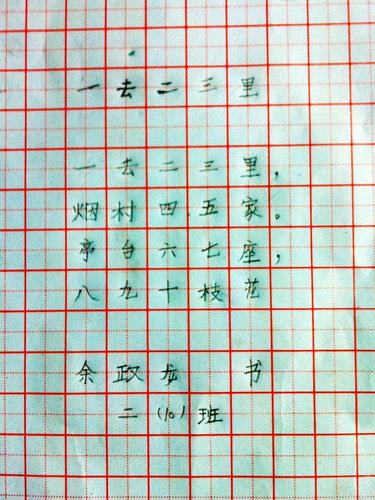 一去二三里
一去二三里，
烟村四五家。
亭台六七座，
八九十枝花
余政龙 书
二(10)班